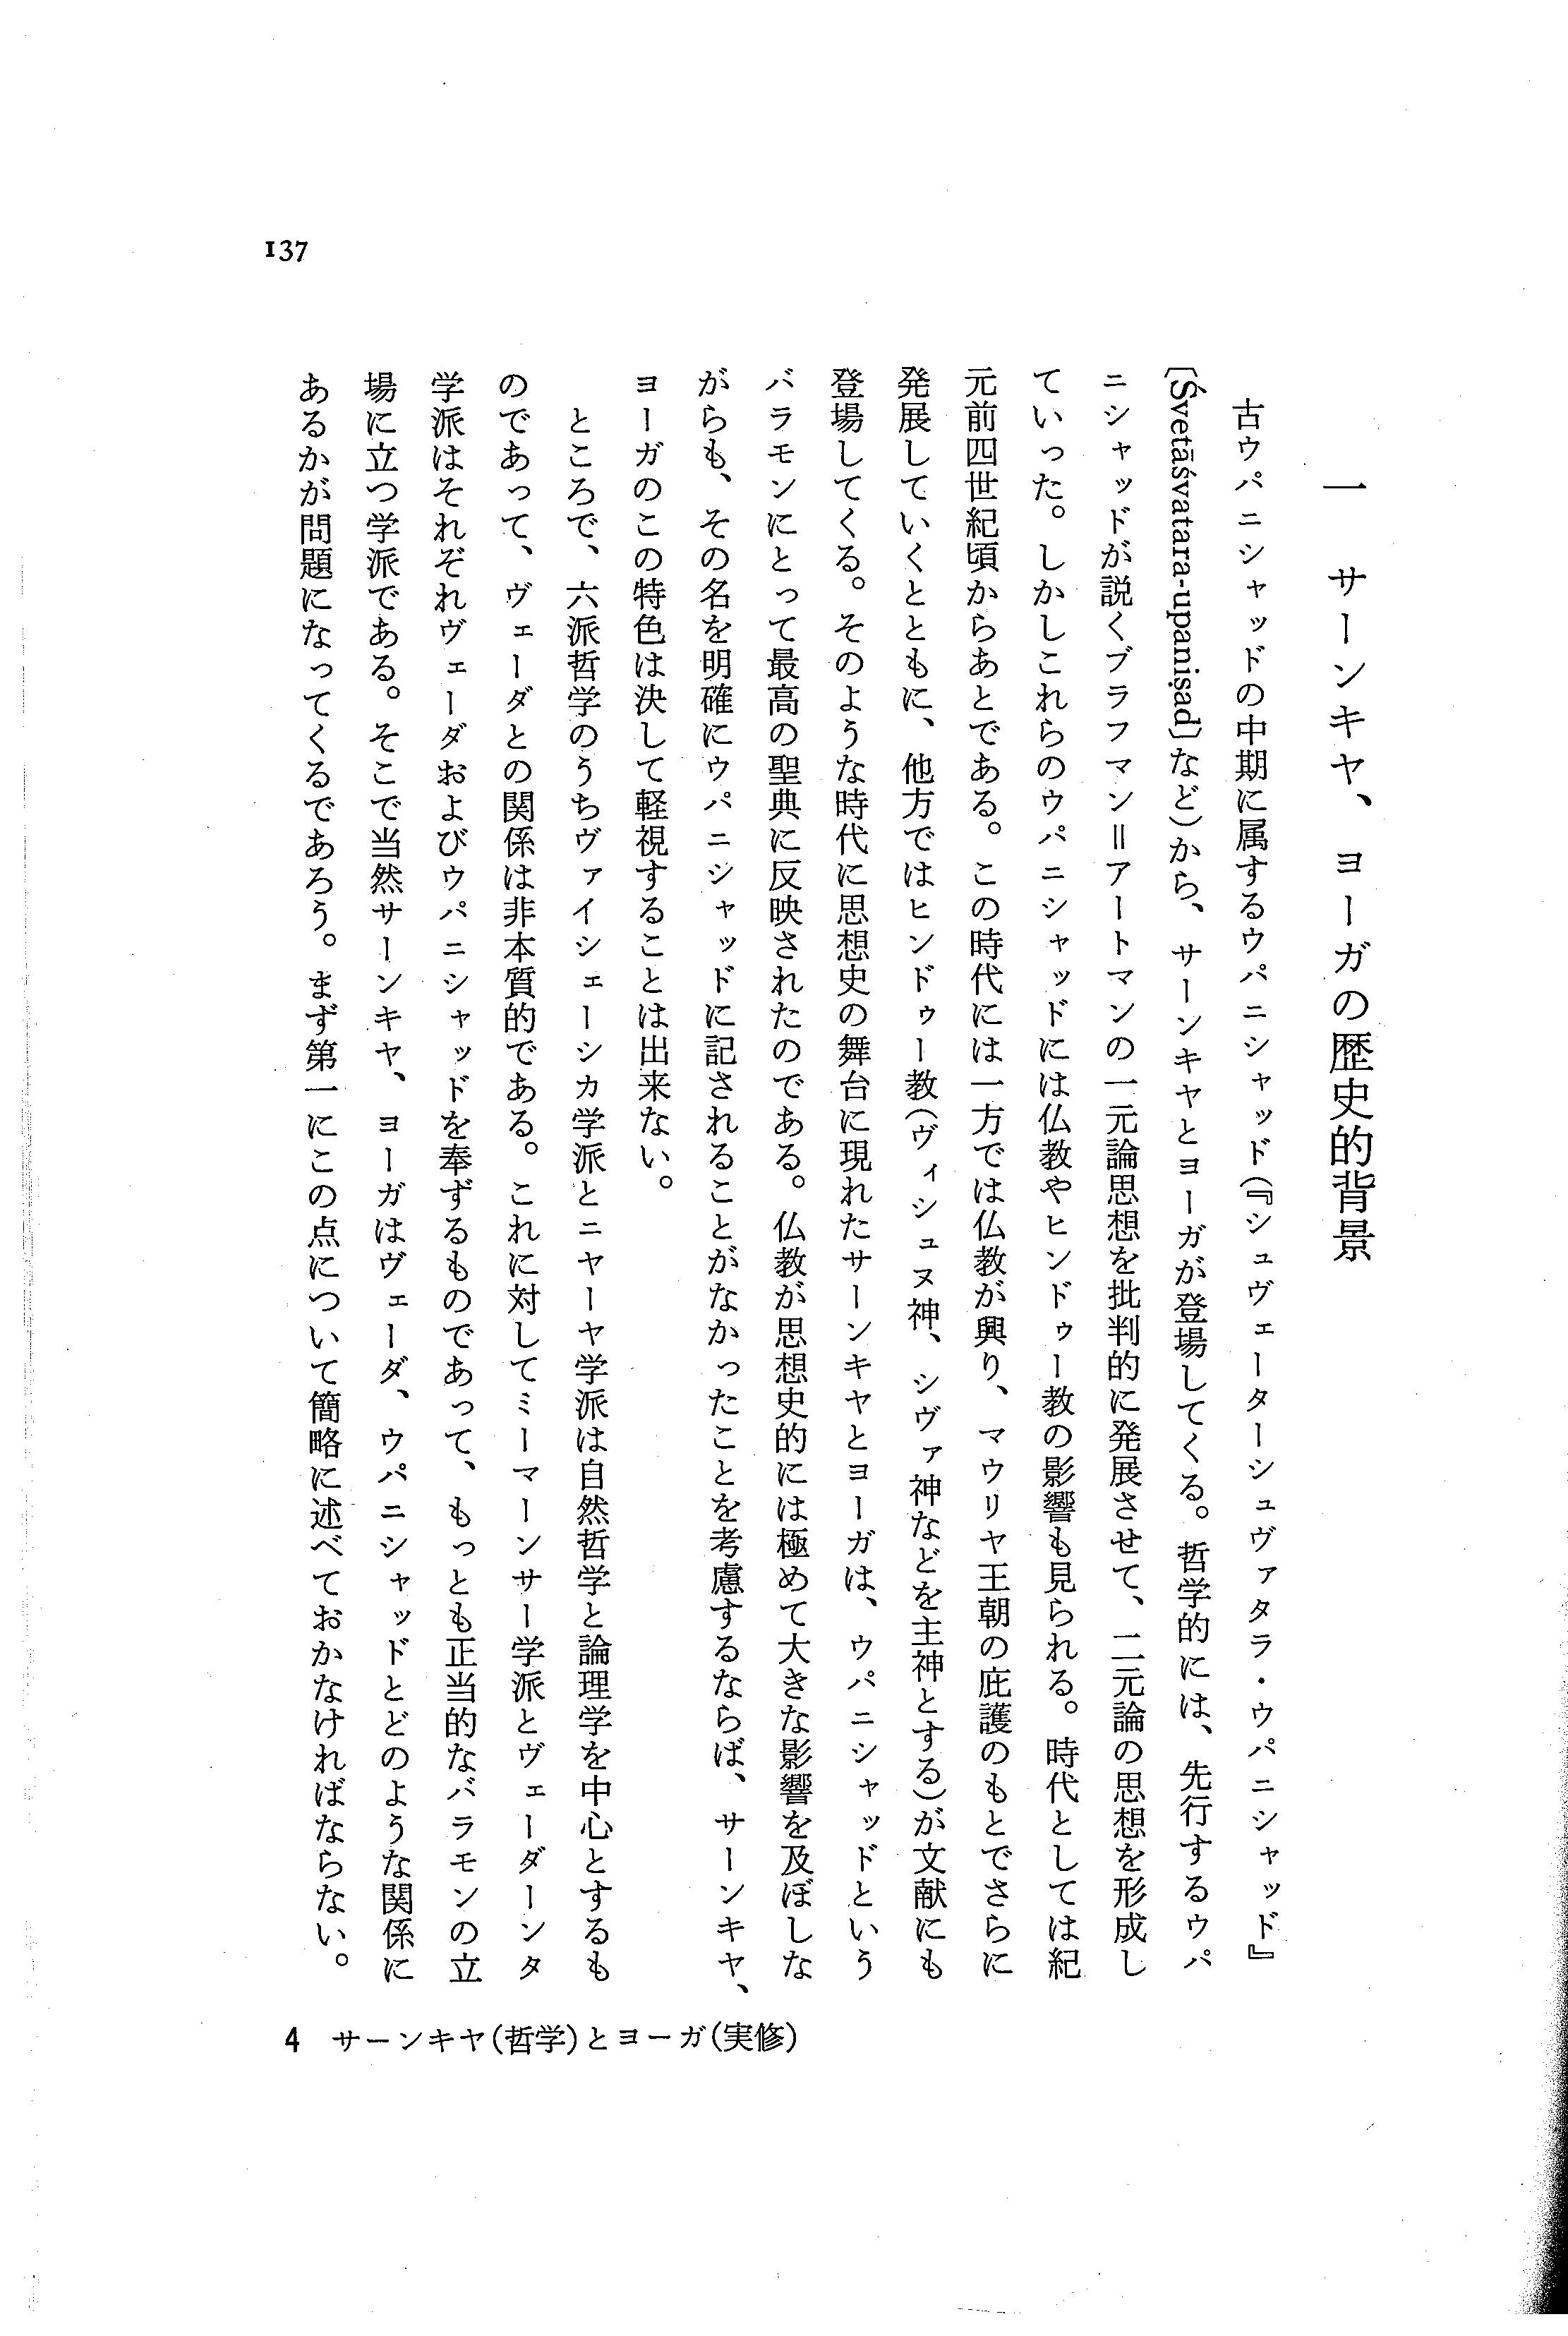 一　サーンキヤ、ヨーガの歴史的背景
　古ウパニシャッドの中期に属するウパニシャッド(『シュヴェーターシュヴァタラ・ウパニシャッド』
〔Śvetāśvatara-upaniṣad〕など)から、サーンキヤとヨーガが登場してくる。哲学的には、先行するウパ
ニシャッドが説くブラフマン＝アートマンの一元論思想を批判的に発展させて、二元論の思想を形成し
ていった。しかしこれらのウパニシャッドには仏教やヒンドゥー教の影響も見られる。時代としては紀
元前四世紀頃からあとである。この時代には一方では仏教が興り、マウリヤ王朝の庇護のもとでさらに
発展していくとともに、他方ではヒンドゥー教(ヴィシュヌ神、シヴァ神などを主神とする)が文献にも
登場してくる。そのような時代に思想史の舞台に現れたサーンキヤとヨーガは、ウパニシャッドという
バラモンにとって最高の聖典に反映されたのである。仏教が思想史的には極めて大きな影響を及ぼしな
がらも、その名を明確にウパニシャッドに記されることがなかったことを考慮するならば、サーンキヤ、
ヨーガのこの特色は決して軽視することは出来ない。
　ところで、六派哲学のうちヴァイシェーシカ学派とニヤーヤ学派は自然哲学と論理学を中心とするも
のであって、ヴェーダとの関係は非本質的である。これに対してミーマーンサー学派とヴェーダーンタ
学派はそれぞれヴェーダおよびウパニシャッドを奉ずるものであって、もっとも正当的なバラモンの立
場に立つ学派である。そこで当然サーンキヤ、ヨーガはヴェーダ、ウパニシャッドとどのような関係に
あるかが問題になってくるであろう。まず第一にこの点について簡略に述べておかなければならない。
137
4　サーンキヤ(哲学)とヨーガ(実修)